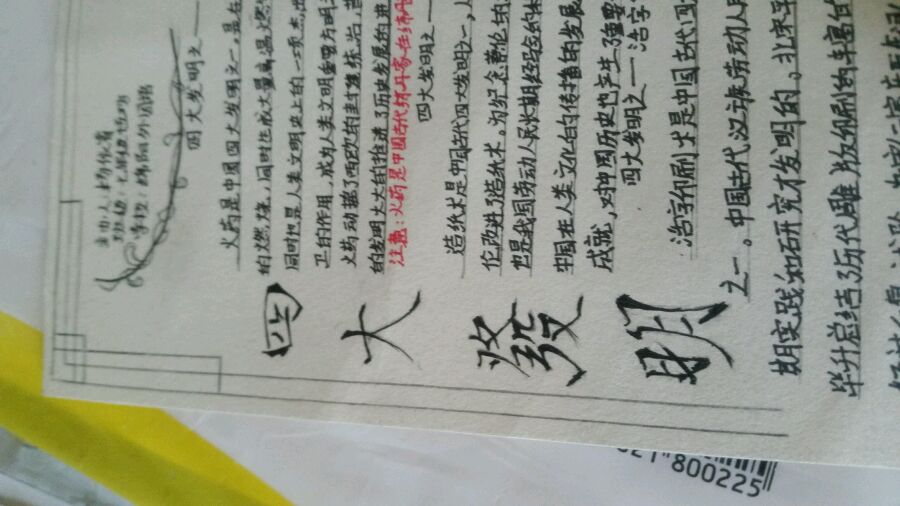 班级:
学校:
四大发明之一
四大發明
火药是中国四大发明之一,是
的燃烧,同时生成大量高温燃
同时也是人类文明史上的一项杰出
卫的作用,成为人类文明
火药动摇了西欧的封建统治,
的发明大大的推进了历史发展的进
注意:火药是中国古代炼丹家在炼丹
四大发明之一
造纸术是中国古代四大发明之一,人
伦改进了造纸术。为纪念蔡伦的
也是我国劳动人民长期经验的积
中国在人类文化的传播和发展
成就,对中国历史也产生了重要
四大发明之一——活字
活字印刷术是中国古代四
之一。中国古代汉族劳动人民
期实践和研究才发明的。北宋平
毕升总结了历代雕版印刷的丰富的
800225